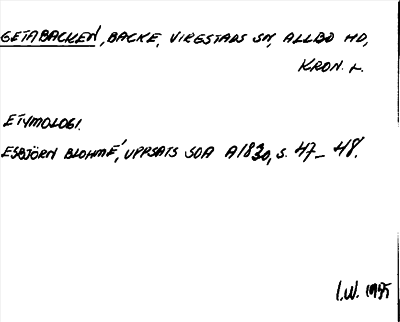 GETABACKEN, BACKE, VIRESTADS SN, ALLBO HD,
KRON. L.
ETYMOLOGI.
ESBJÖRN BLOHMÉ, UPPSATS SOA A1830, S. 47-48.
I.W. 1975